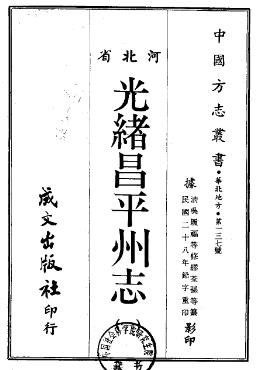 中國方志叢書•華北地方•第一三七號
據
清吳履福等修繆荃孫等纂
民國二十八年鉛字重印
影印
河北省
光緒昌平州志
成文出版社印行